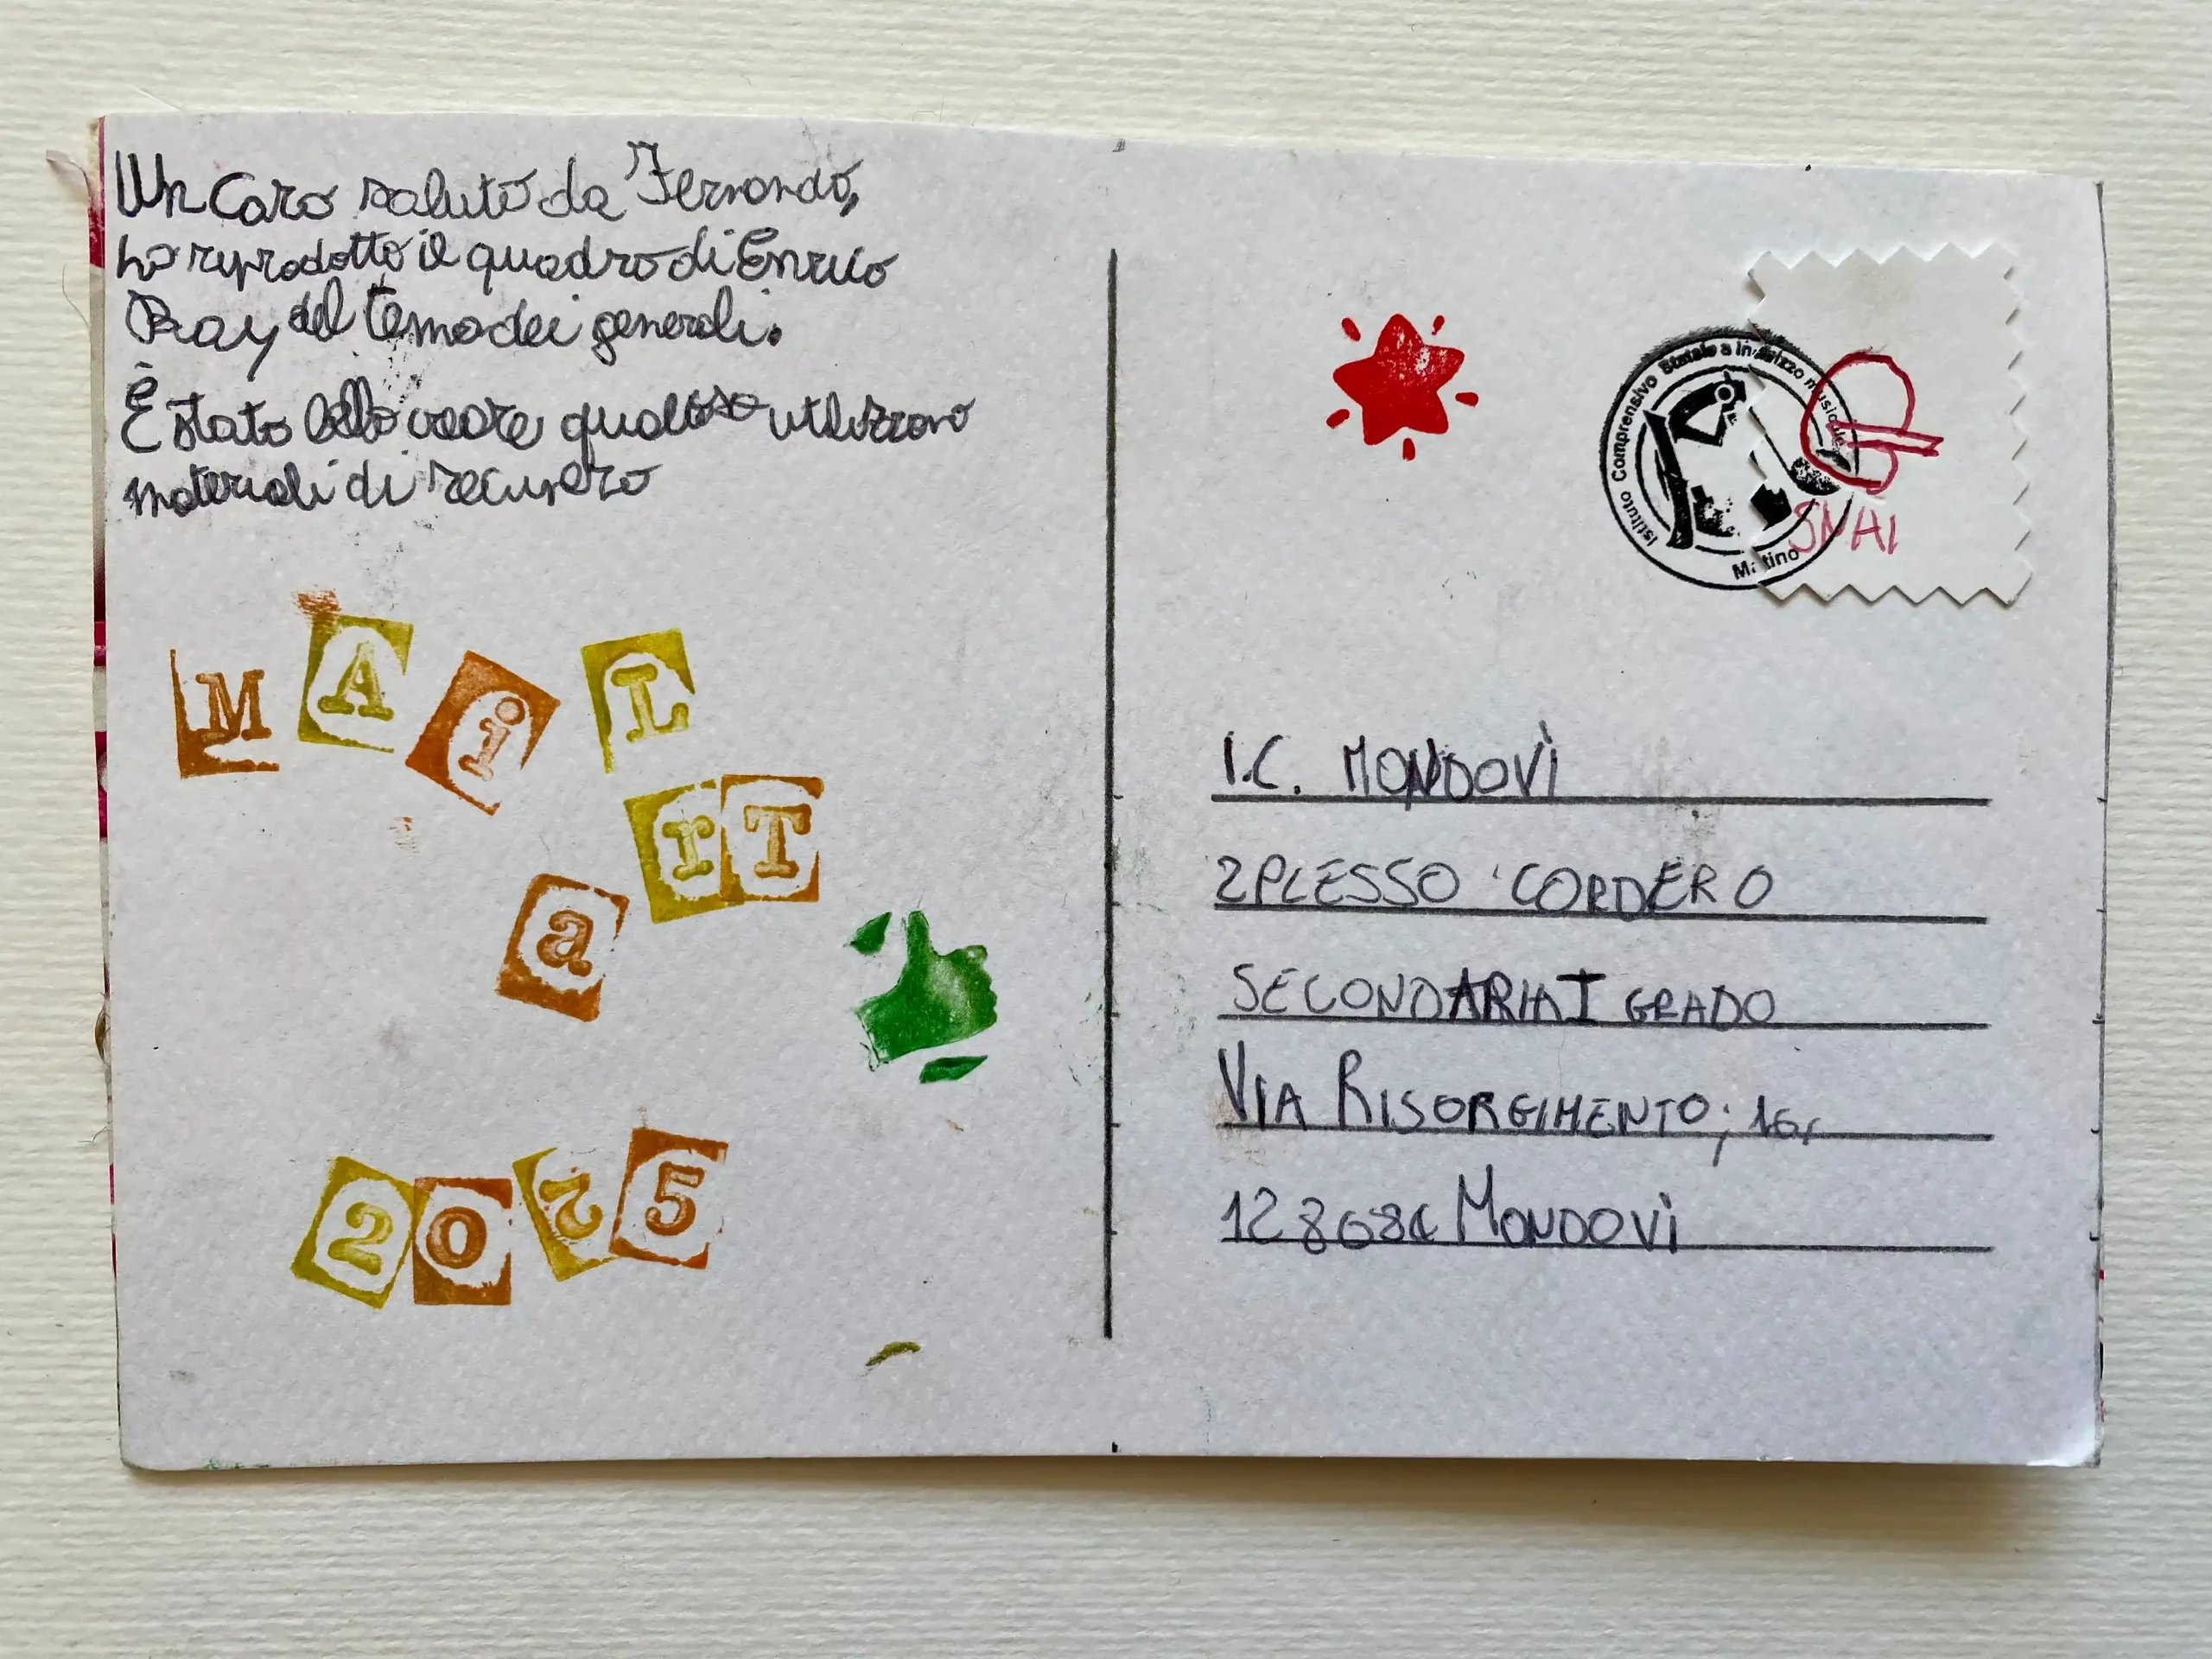 Un caro saluto da Fernando,
ho riprodotto il quadro di Enrico
Bay del tema dei generali.
È stato bello creare qualcosa utilizzano
materiali di recupero
MAiL
arT
2025
Istituto Comprensivo Statale a Indirizzo musicale
Matino
SNAI
I.C. MONDOVÌ
2PLESSO CORDERO
SECONDARIA I GRADO
VIA RISORGIMENTO, 16,
MONDOVÌ